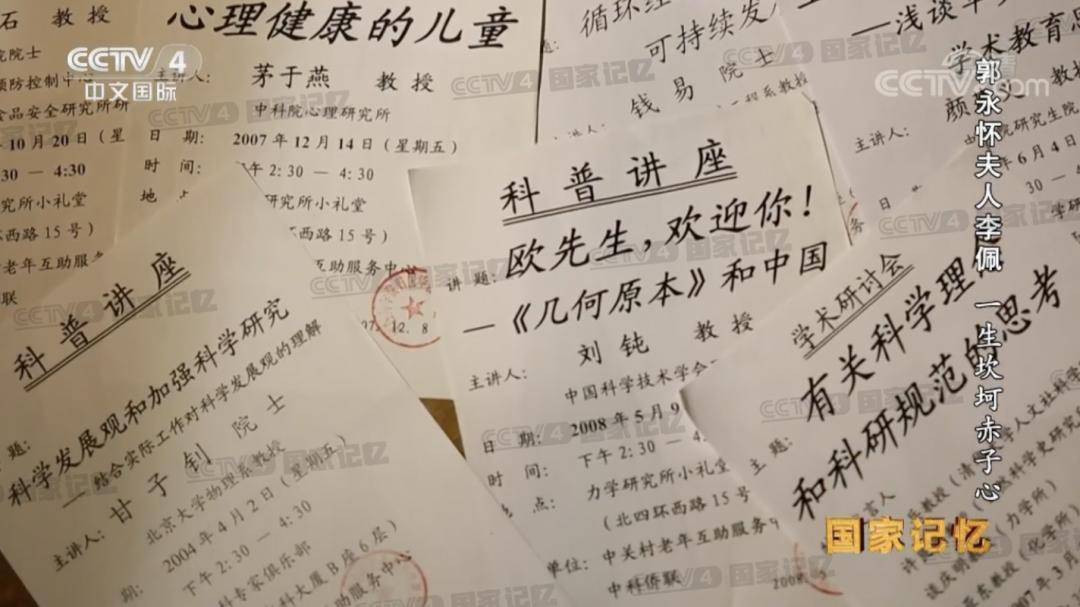 CCTV 4
中文国际
石 教授
院院士
预防控制中心
食品安全研究所研
10月20日(星
30 — 4:30
研究所小礼堂
环西路15号)
村老年互助服务
联
心理健康的儿童
主讲人: 茅于燕 教授
中科院心理研究所
日 期: 2007年12月14日(星期五)
时 间: 下午2:30 — 4:30
地
研究所小礼堂
西路15号)
互助服务中
12. 8
循环经
可持续发
钱易 院士
系教授
讲人:
浅谈
学术教育思
颜 教授
主讲人:
院研究生院
年6月4日
30 — 4
科普讲座
题:
科学发展观和加强科学研究
—结合实际工作对科学发展观的理解
主讲人: 甘子钊 院士
北京大学物理系教授
期: 2004年4月2日(星期五)
下午2:30—4:30
科专家俱乐部
科大厦B座6层)
助服务中心
科普讲座
讲题: 欧先生,欢迎你!
—《几何原本》和中国
主讲人: 刘钝 教授
中国科学技术学会
日 期: 2008年5月9
时 间: 下午2:30 — 4:
地 点: 力学研究所小礼堂
(北四环西路15号
单位: 中关村老年互助服务中
中科侨联
学术研讨会
主题: 有关科学理
和科研规范的思考
言人
教授(清
学人文社科学
科学史研究
(力学所)
谈庆明
东教授(化学所)
2007年3月
郭永怀夫人李佩 一生坎坷赤子心
国家记忆
CCTV.com
CCTV4 国家记忆